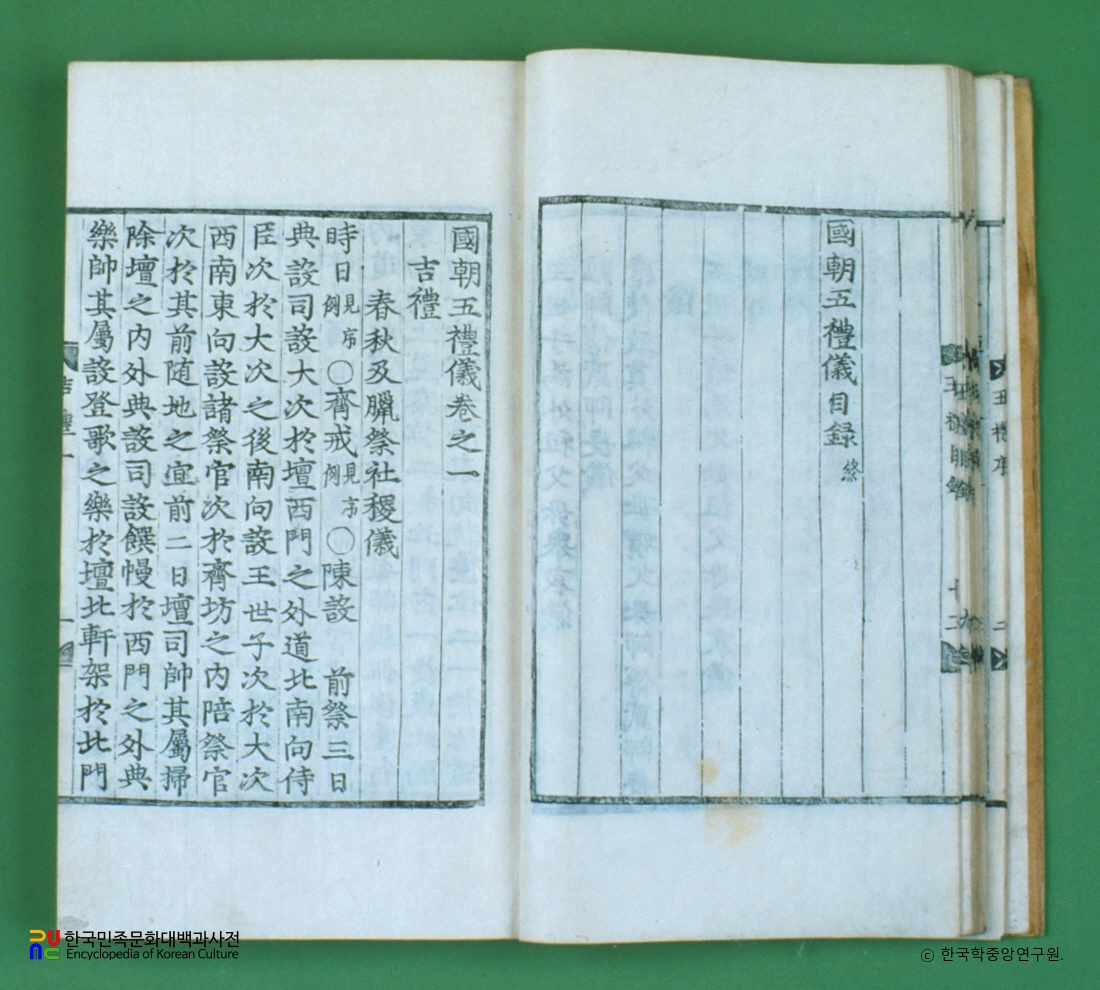 國朝五禮儀目録 終
國朝五禮儀卷之一
吉禮
春秋及臘祭社稷儀
時日見序例○齊戒見序例○陳設 前祭三日
典設司設大次於壇西門之外道北南向侍
臣次於大次之後南向設王世子次於大次
西南東向設諸祭官次於齊坊之內陪祭官
次於其前随地之宜前二日壇司帥其屬掃
除壇之内外典設司設饌幔於西門之外典
樂帥其屬設登歌之樂於壇北軒架於北門
한국민족문화대백과사전
Encyclopedia of Korean Culture
© 한국학중앙연구원.